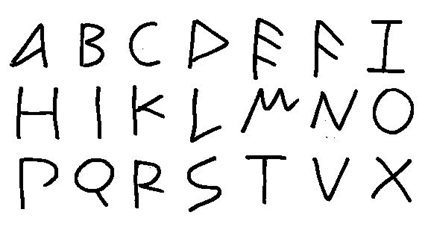 A B C D E F I
H I K L M N O
P Q R S T V X